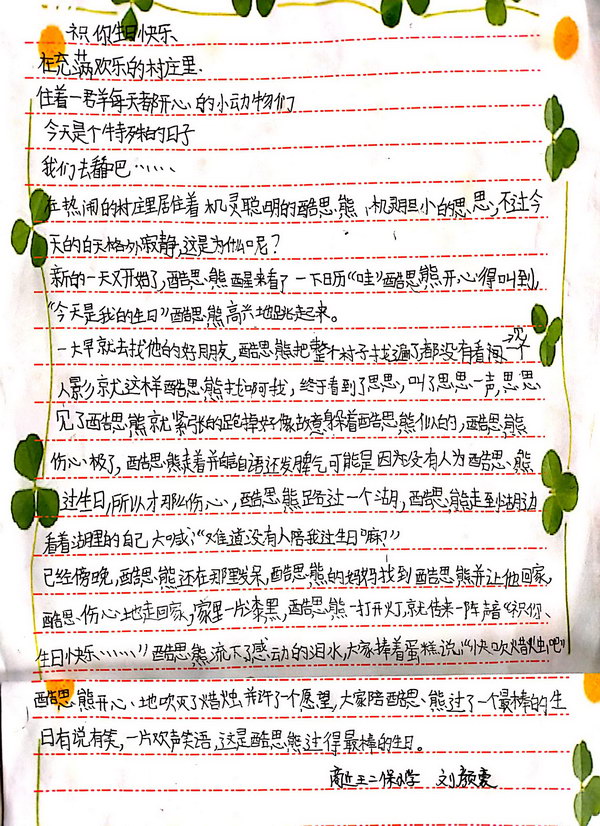 祝你生日快乐
在充满欢乐的村庄里.
住着一君羊每天都开心的小动物们
今天是个特殊的日子
我们去看看吧……
在热闹的村庄里居住着机灵聪明的酷思熊,机灵胆小的思思,不过今
天的白天格外寂静,这是为什么呢?
新的一天又开始了,酷思熊醒来看了一下日历“哇”酷思熊开心得叫到,
“今天是我的生日”酷思熊高兴地跳起来。
一大早就去找他的好朋友,酷思熊把整个村子找遍了都没有看间一个
人影,就这样酷思熊找啊找,终于看到了思思,叫了思思一声,思思
见了酷思熊就紧张的跑掉好像故意躲着酷思熊似的,酷思熊
伤心极了,酷思熊走着并自言自语还发脾气可能是因为没有人为酷思熊
过生日,所以才那么伤心,酷思熊路过一个湖,酷思熊走到湖边
看着湖里的自己大喊:“难道没有人陪我过生日嘛?”
已经傍晚,酷思熊还在那里发呆,酷思熊的妈妈找到酷思熊并让他回家,
酷思伤心地走回家,家里一片漆黑,酷思熊一打开灯,就传来一阵声音“祝你、
生日快乐……”酷思熊流下了感动的泪水,大家捧着蛋糕说:“快吹蜡烛吧”
酷思熊开心地吹灭了蜡烛,并许了个愿望,大家陪酷思熊过了一个最棒的生
日有说有笑,一片欢声笑语,这是酷思熊过得最棒的生日。
商丘王二保小学 刘颜豪